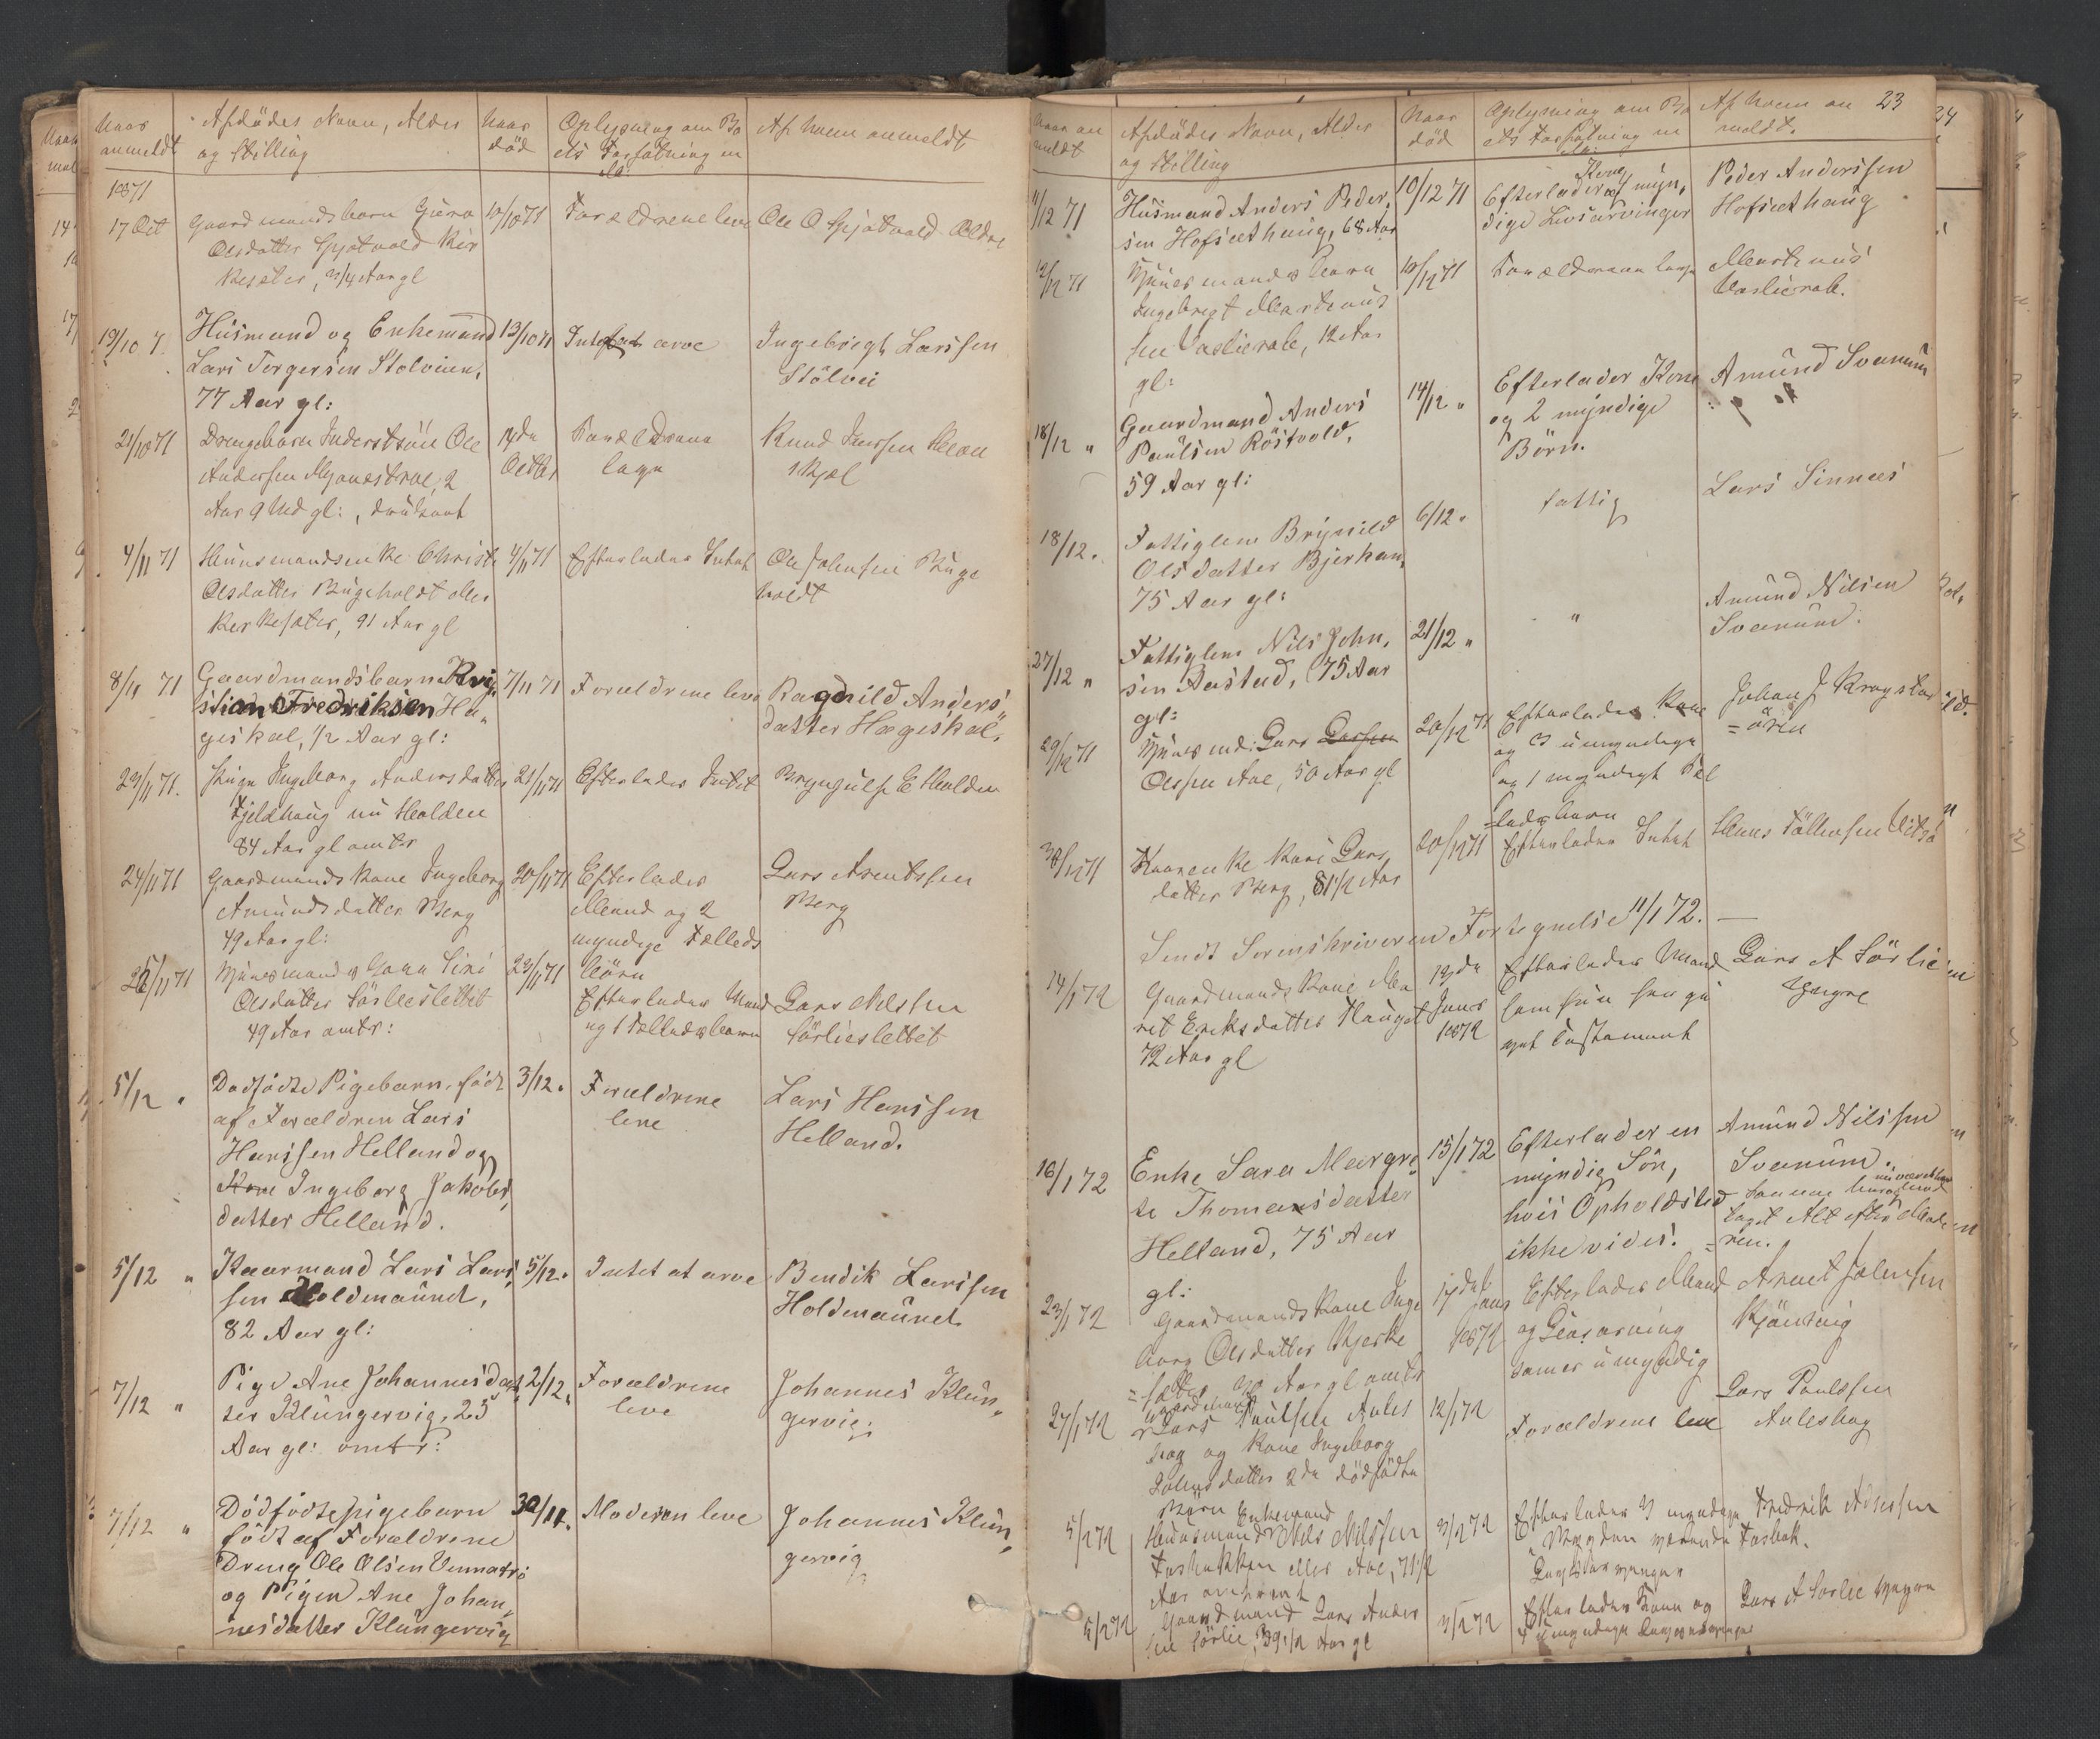 Naar
anmeldt
Afdødes Navn, Alder
og Stilling
Naar
død
Oplysning om Bo
ets Forfatning m
m:
Af hvem anmeldt
1871
17 Oct
Gaardmandsbarn Guro
Olsdatter Gjøtvold Kir
kesæter, 3/4 Aar gl
10/10 71
Forældrene leve
Ole O Gjøtvold Ældre
19/10 7
Husmand og Enkemand
Lars Torgersen Stølvien,
77 Aar gl:
13/10 71
Intet at arve
Ingebrigt Larssen
Stölvei
21/10 71
Drengebarn
Ole
Anderssen Moanestrøe, 2
Aar 9 Md gl:, druknet
14de
Octbr,
Forældrene
leve
Knud
4/11 71
Huusmandsenke
Olsdatter Rugeholdt eller
Kirkesæter, 91 Aar gl
4/11 71
Efterlader Intet
Ole Johnsen Ruge
holdt
8/11 71
Gaardmandsbarn Kri,
stian Fredriksen Hæ,
geiskal, 1/2 Aar gl:
7/11 71
Forældrene leve
Ragnild Anders,
datter Hægeiskal,
23/11 71.
Pige Ingeborg Andersdatter
Fjeldhaug nu Holden
84 Aar gl omtr
21/11 71
Efterlader Intet
Bryngulf E Holden
24/11 71
Gaardmandskone Ingeborg
Amundsdatter Berg
49 Aar gl:
20/11 71
Efterlader
Mand og 2
myndige Fælleds
börn
Lars Arentssen
Berg
26/11 71
Huusmandskone Siri
Olsdatter Sörlieslettet
49 Aar omtr:
23/11 71
Efterlader Mand
og 1 Fælledsbarn
Lars Nilssen
Sörliesletttet
5/12 "
Dødfødte Pigebarn, født
af Forældren Lars
Hanssen Helland og
Kone Ingeborg Jakobs,
datter Helland.
3/12 "
Forældrene
leve
Lars Hanssen
Helland.
5/12 "
Kaarmand Lars Lars,
sen Holdmaunet,
82 Aar gl:
5/12 "
Intet at arve
Bendik Larssen
Holdmaunet
7/12 "
Pige Ane Johannesdat,
ter Klungervig, 25
Aar gl: omtr:
2/12 "
Forældrene
leve
Johannes Klun,
gervig
7/12 "
Dödfödte pigebarn
födt af Forældrene
Dreng Ole Olsen Vennatrø
og Pigen Ane Johan,
nesdatter Klungervig
30/11.
Moderen leve
Johannes Klun,
gervig
23
Naar an
meldt
Afdödes Navn, Alder
og Stilling
Naar
död
Oplysning om Bo
ets Forfatning m
m:
Af hvem an
meldt.
11/12 71
Husmand Anders Peder,
sen Hofsethaug, 68 Aar
10/12 71
Kone
Efterlader og myn,
dige Livsarvinger
Peder Anderssen
Hofsethaug
12/12 71
Huusmandsbarn
Ingebrigt Martinus
sen Vaslierab, 12 Aar
gl:
10/12 71
Forældrene leve
Martinus
Vaslierab.
18/12 "
Gaardmand Anders
Paulsen Röstvold,
59 Aar gl:
14/12 "
Efterlader Kone
og 2 myndige
Börn.
Amund Svanum
18/12 "
Fattiglem Brynild
Olsdatter Bjerkan,
75 Aar gl:
6/12 "
fattig
Lars Sinnæs
27/12 "
Fattiglem Nils John,
sen Aastad, 75 Aar
gl:
21/12 "
"
Amund Nilsen
Svanum.
29/12 71
Huusmd: Lars Larssen
Olssen Aae, 50 Aar gl
20/12 71
Efterlader Kone
og 3 umyndige
og 1 myndigt Fæl
=ledsbarn
Johan J Krogstad
=ören
30/12 71
Kaarenke Kari Lars,
datter Berg, 81 1/2 Aar
20/12 71
Efterlader Intet
Hans
Sendt Sorenskriveren Fortegnelse 11/1 72. —
14/1 72
Gaardmandskone Ma
rit Eriksdatter Hauget
72 Aar gl
13de
Januar
1872
Efterlader Mand
som hun har gi
vet Testament
Lars A Sörlie
Yngre
16/1 72
Enke Sara Margre,
te Thomasdatter
Helland, 75 Aar
gl:
15/1 72
Efterlader en
myndig Sön,
hvis Opholdsted
ikke vides.
Amund Nilssen
Svanum.
taget Alt efter Mode
=ren.
23/1 72
Gaardmandskone Inge
borg Olsdatter Kjerke
=sæter, 30 Aar gl omtr
17de Janr
1872
Efterlader Mand
og Livsarving
som er umyndig
Arent Johnsen
Kjönsvig
27/1 72
Gaardmand
Lars Paulsen Aules
hog og Kone Ingeborg
Johnsdatter 2de dödfödte
Börn
12/1 72
Forældrene leve
Lars Paulssen
Auleshog
5/2 72
Enkemand
Huusmand Nils Nilssen
Forbakken eller Aae, 71 1/2
Aar omtrent
3/2 72
Efterlader 3 myndige
i Bygden værende
Livsarvinger
Fredrik
Forbak.
5/2 72
Gaardmand Lars Anders
sen Sörlie, 39 1/2 Aar gl
3/2 72
Efterlader Kone og
4 umyndige Livsarvinger
Lars A Sørlie Yngre
24